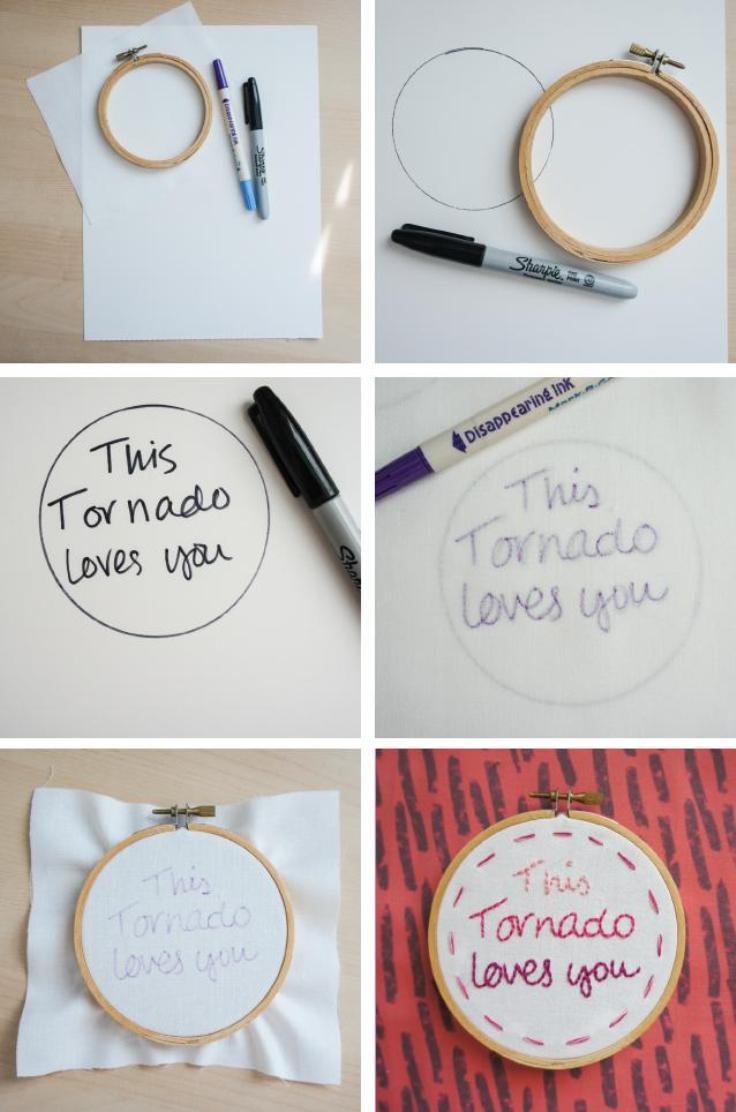 Disappearing ink
Sharpie
Sharpie
FINE POINT
This
Tornado
loves you
Sha
Disappearing ink
This
Tornado
loves you
This
Tornado
loves you
This
Tornado
loves you